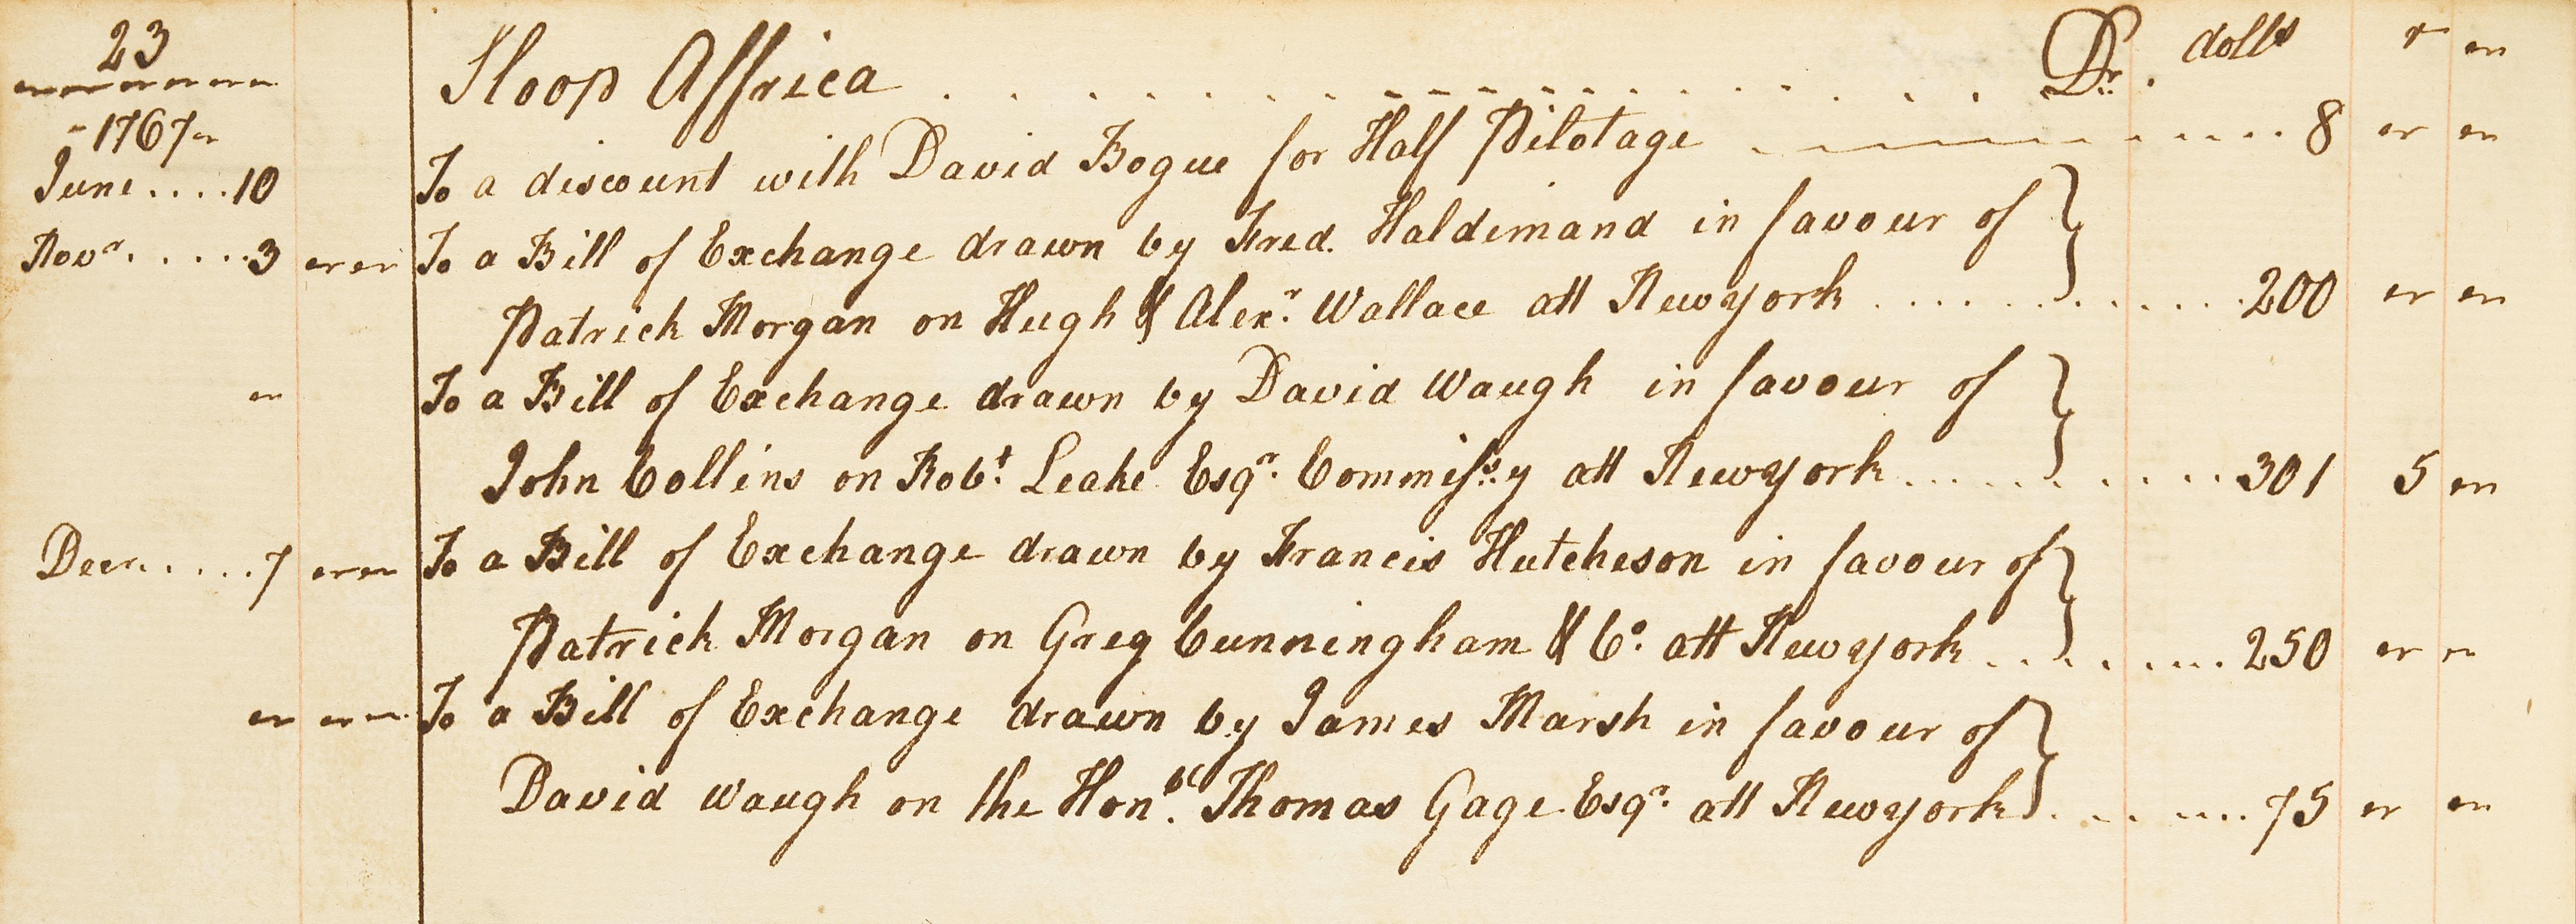 23
1767
Sloop Affrica . . . . . . . . . . . . . . . Dr. dolls r
June . . . . 10 To a discount with David Bogue for Half Pilotage . . . . . 8
Novr. . . . . 3 To a Bill of Exchange drawn by Fred. Haldimand in favour of }
Patrick Morgan on Hugh & Alexr. Wallace att Newyork . . . . . . . . . 200
To a Bill of Exchange drawn by David Waugh in favour of }
John Collins on Robt. Leake Esqr. Commissy att Newyork . . . . . . . . . 301 5
Decr. . . . . 7 To a Bill of Exchange drawn by Francis Hutcheson in favour of }
Patrick Morgan on Greg Cunningham & Co. att Newyork . . . . . . . . 250
To a Bill of Exchange drawn by James Marsh in favour of }
David Waugh on the Honbl. Thomas Gage Esqr. att Newyork . . . . . . . 75